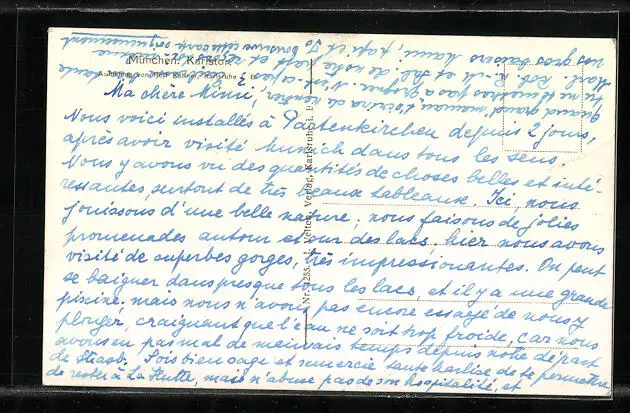 München. Karlstor.
Nr. 1255. J. Velten, Verlag, Karlsruhe i. B.
Ma chère Mimi,
Nous voici installés à Partenkirchen depuis 2 jours,
après avoir visité Munich dans tous les sens.
Nous y avons vu des quantités de choses belles et inté-
ressantes, surtout de très beaux tableaux. Ici, nous
jouissons d'une belle nature; nous faisons de jolies
promenades autour et sur des lacs; hier nous avons
visité de superbes gorges, très impressionantes. On peut
se baigner dans presque tous les lacs, et il y a une grande
piscine, mais nous n'avons pas encore essayé de nous y
plonger, craignant que l'eau ne soit trop froide, car nous
avons eu pas mal de mauvais temps depuis notre départ
de Strasb. Sois bien sage et remercie tante de te permettre
de rester à La Hutte, mais n'abuse pas de son hospitalité, et
quand grand'maman t'dira de rentrer,
ne te
nos gros baisers